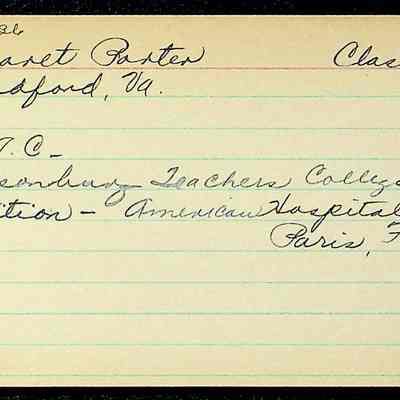 26
aret Porter Clas
dford, Va.
T.C-
sonburg Teachers College
ition - American Hospital
Paris, F